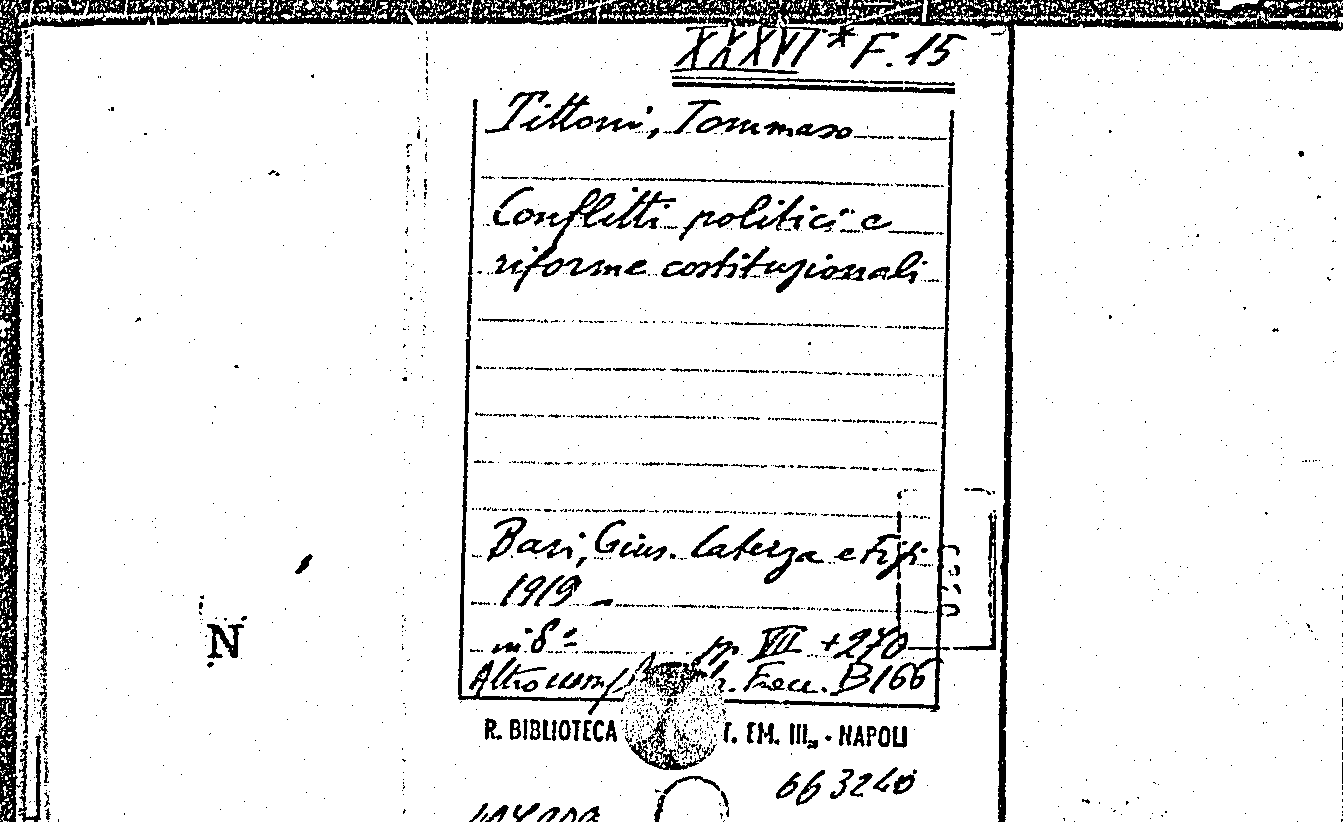 XXXVI * F. 15
Tittoni, Tommaso
Conflitti politici e
riforme costituzionali
Bari, Gius. Laterza e Figli
1919 -
in 8°
pp. VII + 270
Altro B166
R. BIBLIOTECA T. EM. III. - NAPOLI
663240
N